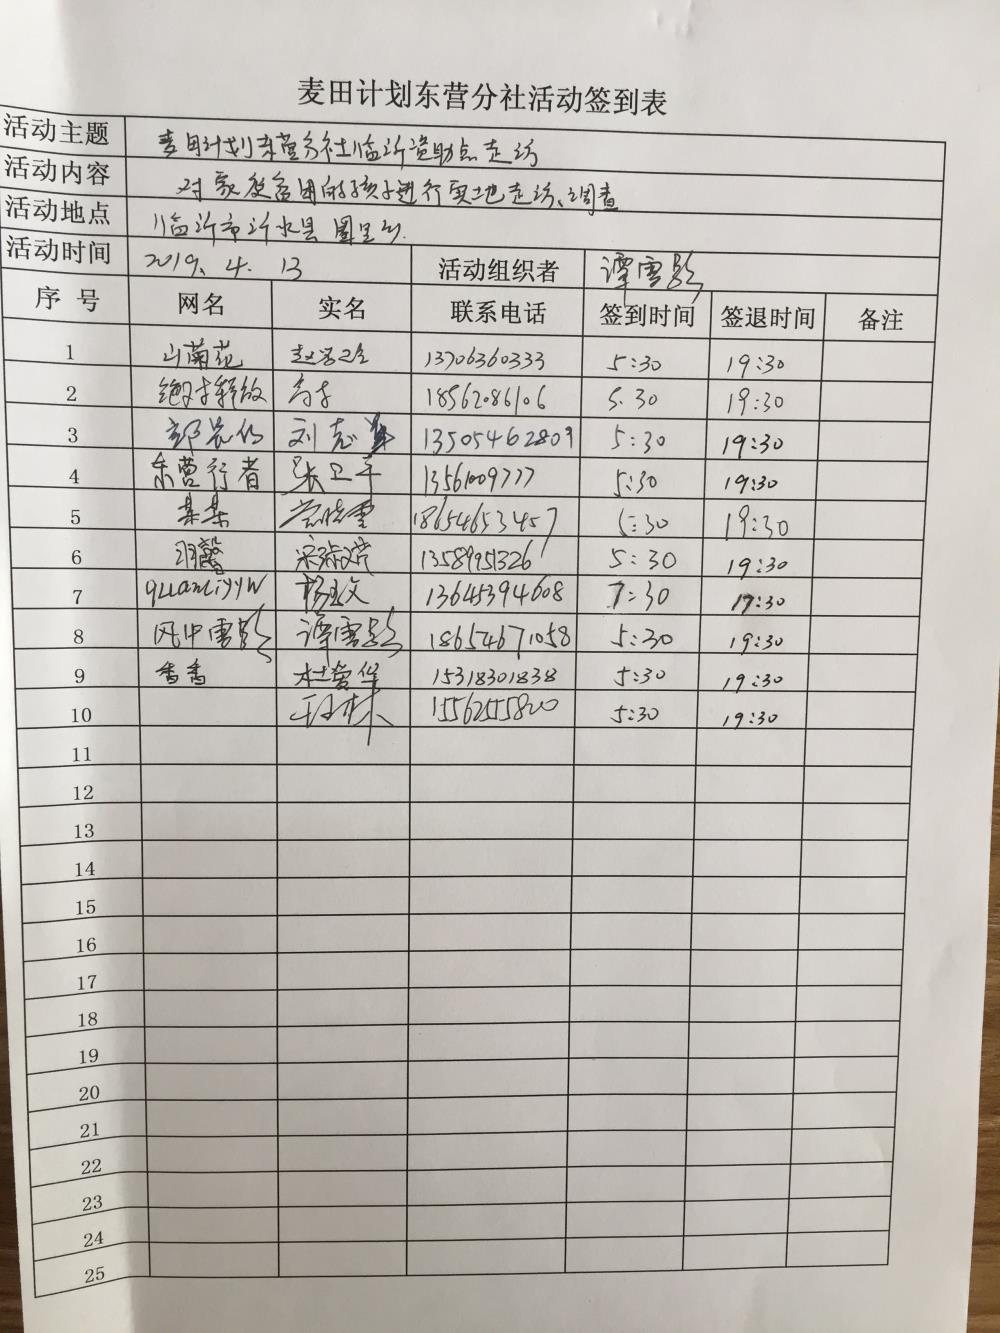 麦田计划东营分社活动签到表
活动主题 麦田计划东营分社临沂资助点走访
活动内容 对家庭贫困的孩子进行实地走访、调查
活动地点 临沂市沂水县圈里乡.
活动时间 2019. 4. 13 活动组织者 谭雪影
序号 网名 实名 联系电话 签到时间 签退时间 备注
1 山菊花 13706360333 5:30 19:30
2 绝对释放 18562086106 5.30 19:30
3 刘志 13505462809 5:30 19:30
4 东营行者 张卫平 13561009777 5:30 19:30
5 某某 18654653457 5:30 19:30
6 羽馨 13589951326 5:30 19:30
7 quanliyyw 杨文 13645394608 7:30 17:30
8 风中雪影 谭雪影 18654671058 5:30 19:30
9 香香 杜爱华 15318301838 5:30 19:30
10 15562555820 5:30 19:30
11
12
13
14
15
16
17
18
19
20
21
22
23
24
25